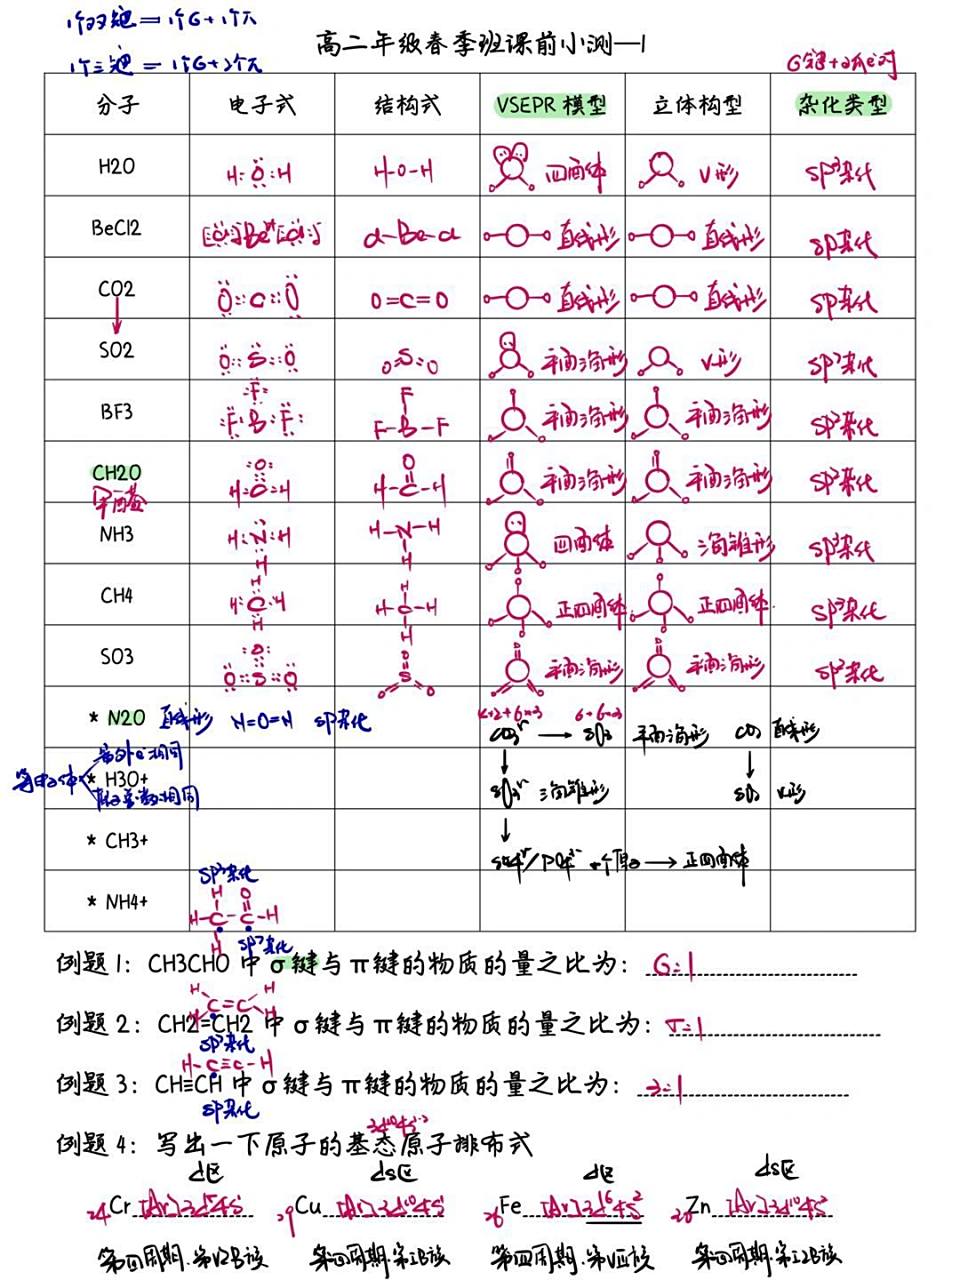 1个双键=1个σ+1个π
1个三键=1个σ+2个π
高二年级春季班课前小测—1
σ键+孤e⁻对
分子 电子式 结构式 VSEPR 模型 立体构型 杂化类型
H2O H:Ö:H H-O-H 四面体 V形 sp³杂化
BeCl2 Cl-Be-Cl 直线形 直线形 sp杂化
CO2 O::C::O O=C=O 直线形 直线形 sp杂化
SO2 O::S::O O=S=O 平面三角形 V形 sp²杂化
BF3 F:B:F F-B-F 平面三角形 平面三角形 sp²杂化
CH2O H-C-H 平面三角形 平面三角形 sp²杂化
甲醛
NH3 H:N:H H-N-H 四面体 三角锥形 sp³杂化
CH4 H:C:H H-C-H 正四面体 正四面体 sp³杂化
SO3 O::S::O 平面三角形 平面三角形 sp²杂化
* N2O 直线形 N=O=N sp杂化 CO₃²⁻ → SO₃ 平面三角形 CO₂ 直线形
等电子体
* H3O+ SO₃²⁻ 三角锥形 SO₂ V形
* CH3+ SO4²⁻/PO4³⁻ → 正四面体
* NH4+
sp³杂化
sp²杂化
例题 1: CH3CHO 中 σ键与 π键的物质的量之比为: 6:1
例题 2: CH2=CH2 中 σ键与 π键的物质的量之比为: 5:1
sp²杂化
H-C≡C-H
例题 3: CH≡CH 中 σ键与 π键的物质的量之比为: 3:1
sp杂化
例题 4: 写出一下原子的基态原子排布式
d区 ds区 d区 ds区
24Cr [Ar]3d⁵4s¹ 29Cu [Ar]3d¹⁰4s¹ 26Fe [Ar]3d⁶4s² Zn [Ar]3d¹⁰4s²
第四周期.第VIB族 第四周期.第IB族 第四周期.第VIII族 第四周期.第IIB族